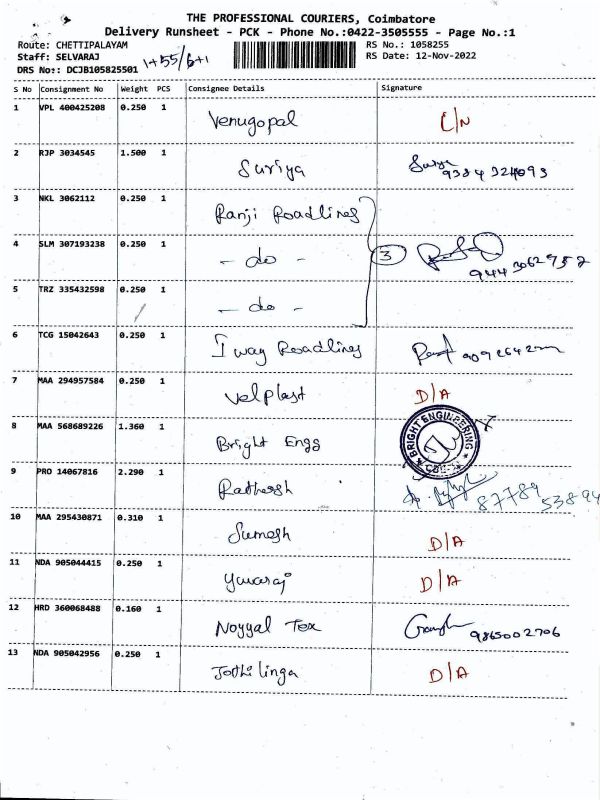 THE PROFESSIONAL COURIERS, Coimbatore
Delivery Runsheet - PCK - Phone No.:0422-3505555 - Page No.:1
Route: CHETTIPALAYAM RS No.: 1058255
Staff: SELVARAJ 1+55/6+1 RS Date: 12-Nov-2022
DRS No:: DCJB105825501
S No Consignment No Weight PCS Consignee Details Signature
1 VPL 400425208 0.250 1 Venugopal C/N
2 RJP 3034545 1.500 1 Suriya Suriya 9384324093
3 NKL 3062112 0.250 1 Ranji Roadlines
4 SLM 307193238 0.250 1 - do - 3 9443062952
5 TRZ 335432598 0.250 1 - do -
6 TCG 15042643 0.250 1 I way Roadlines
7 MAA 294957584 0.250 1 Velplast D/A
8 MAA 568689226 1.360 1 Bright Engg BRIGHT ENGINEERING
9 PRO 14067816 2.290 1 Rathesh 87789 53894
10 MAA 295430871 0.310 1 Sumesh D/A
11 NDA 905044415 0.250 1 Yuvaraj D/A
12 HRD 360068488 0.160 1 Noyyal Tex 9865002706
13 NDA 905042956 0.250 1 Jothilinga D/A